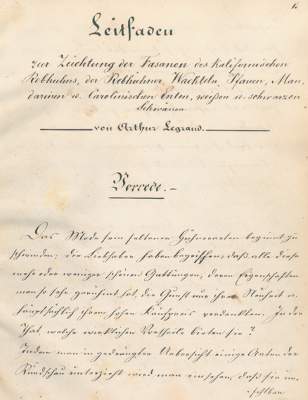 Leitfaden
zur Züchtung der Fasanen des kalifornischen
Rebhuhns, der Rebhühner, Wachteln, Pfauen, Man-
darinen u. Carolinischen Enten, weißen u. schwarzen
Schwänen
von Arthur Legrand.
Vorrede.-
Das Mode sein seltener Hühnerarten beginnt zu
schwinden; der Liebhaber haben begriffen, daß alle diese
mehr oder weniger schönen Gattungen, deren Eigenschaften
man so sehr gerühmt hat, die Gunst nur ihrer Neuheit u.
hauptsächlich ihrem hohen Kaufpreis verdankten. In der
That welche wirklichen Vortheile bieten sie?
Indem man in gedrängter Uebersicht einige Arten der
Rundschau unterzieht wird man einsehen, daß sie im-